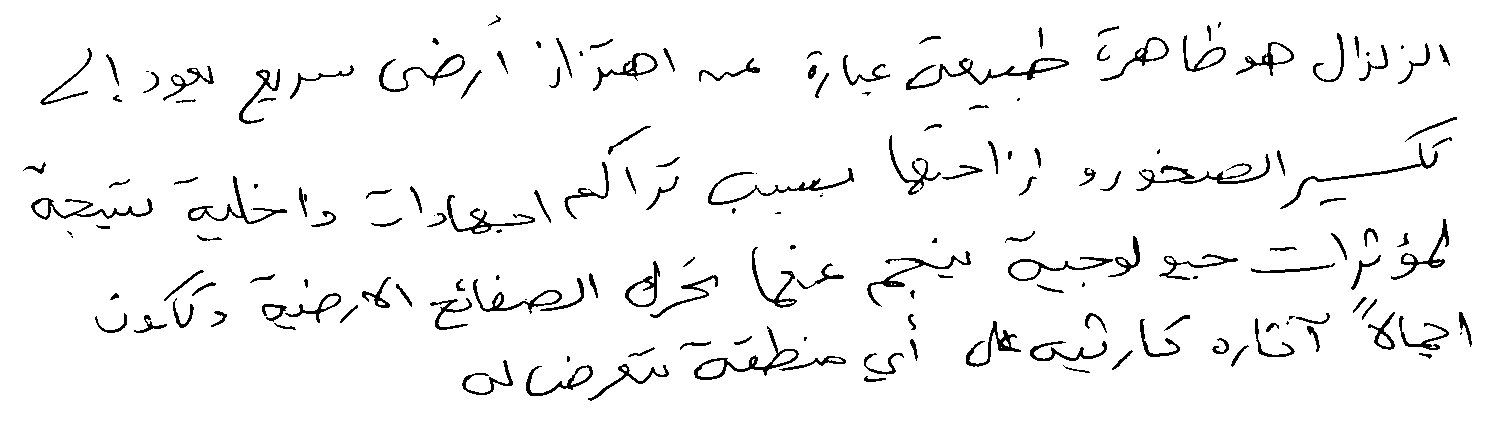 الزلزال هو ظاهرة طبيعية عبارة عن اهتزاز أرضى سريع يعود إلى
تكسير الصخور و إزاحتها بسبب تراكم اجهادات داخلية نتيجة
لمؤثرات جيولوجية ينجم عنها تحرك الصفائح الارضية وتكون
اجمالاً آثاره كارثية على أي منطقة تتعرض له